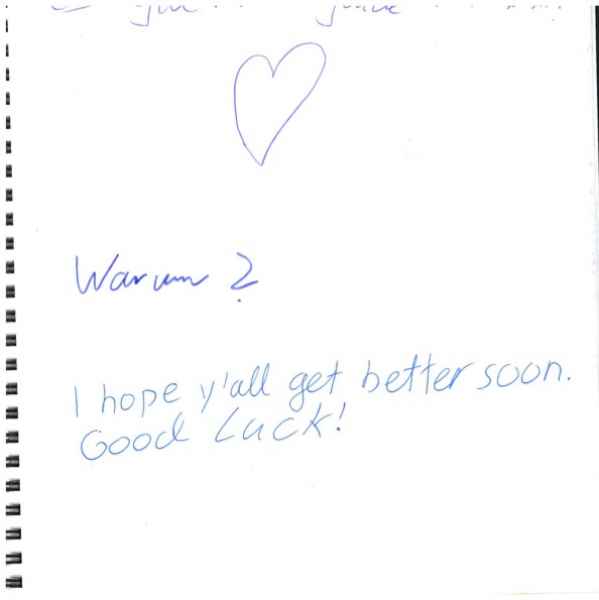 Warum?
I hope y'all get better soon.
Good Luck!